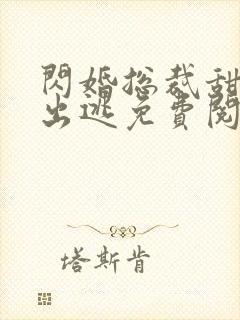 閃婚總裁甜
出逃免費閱
塔斯肯